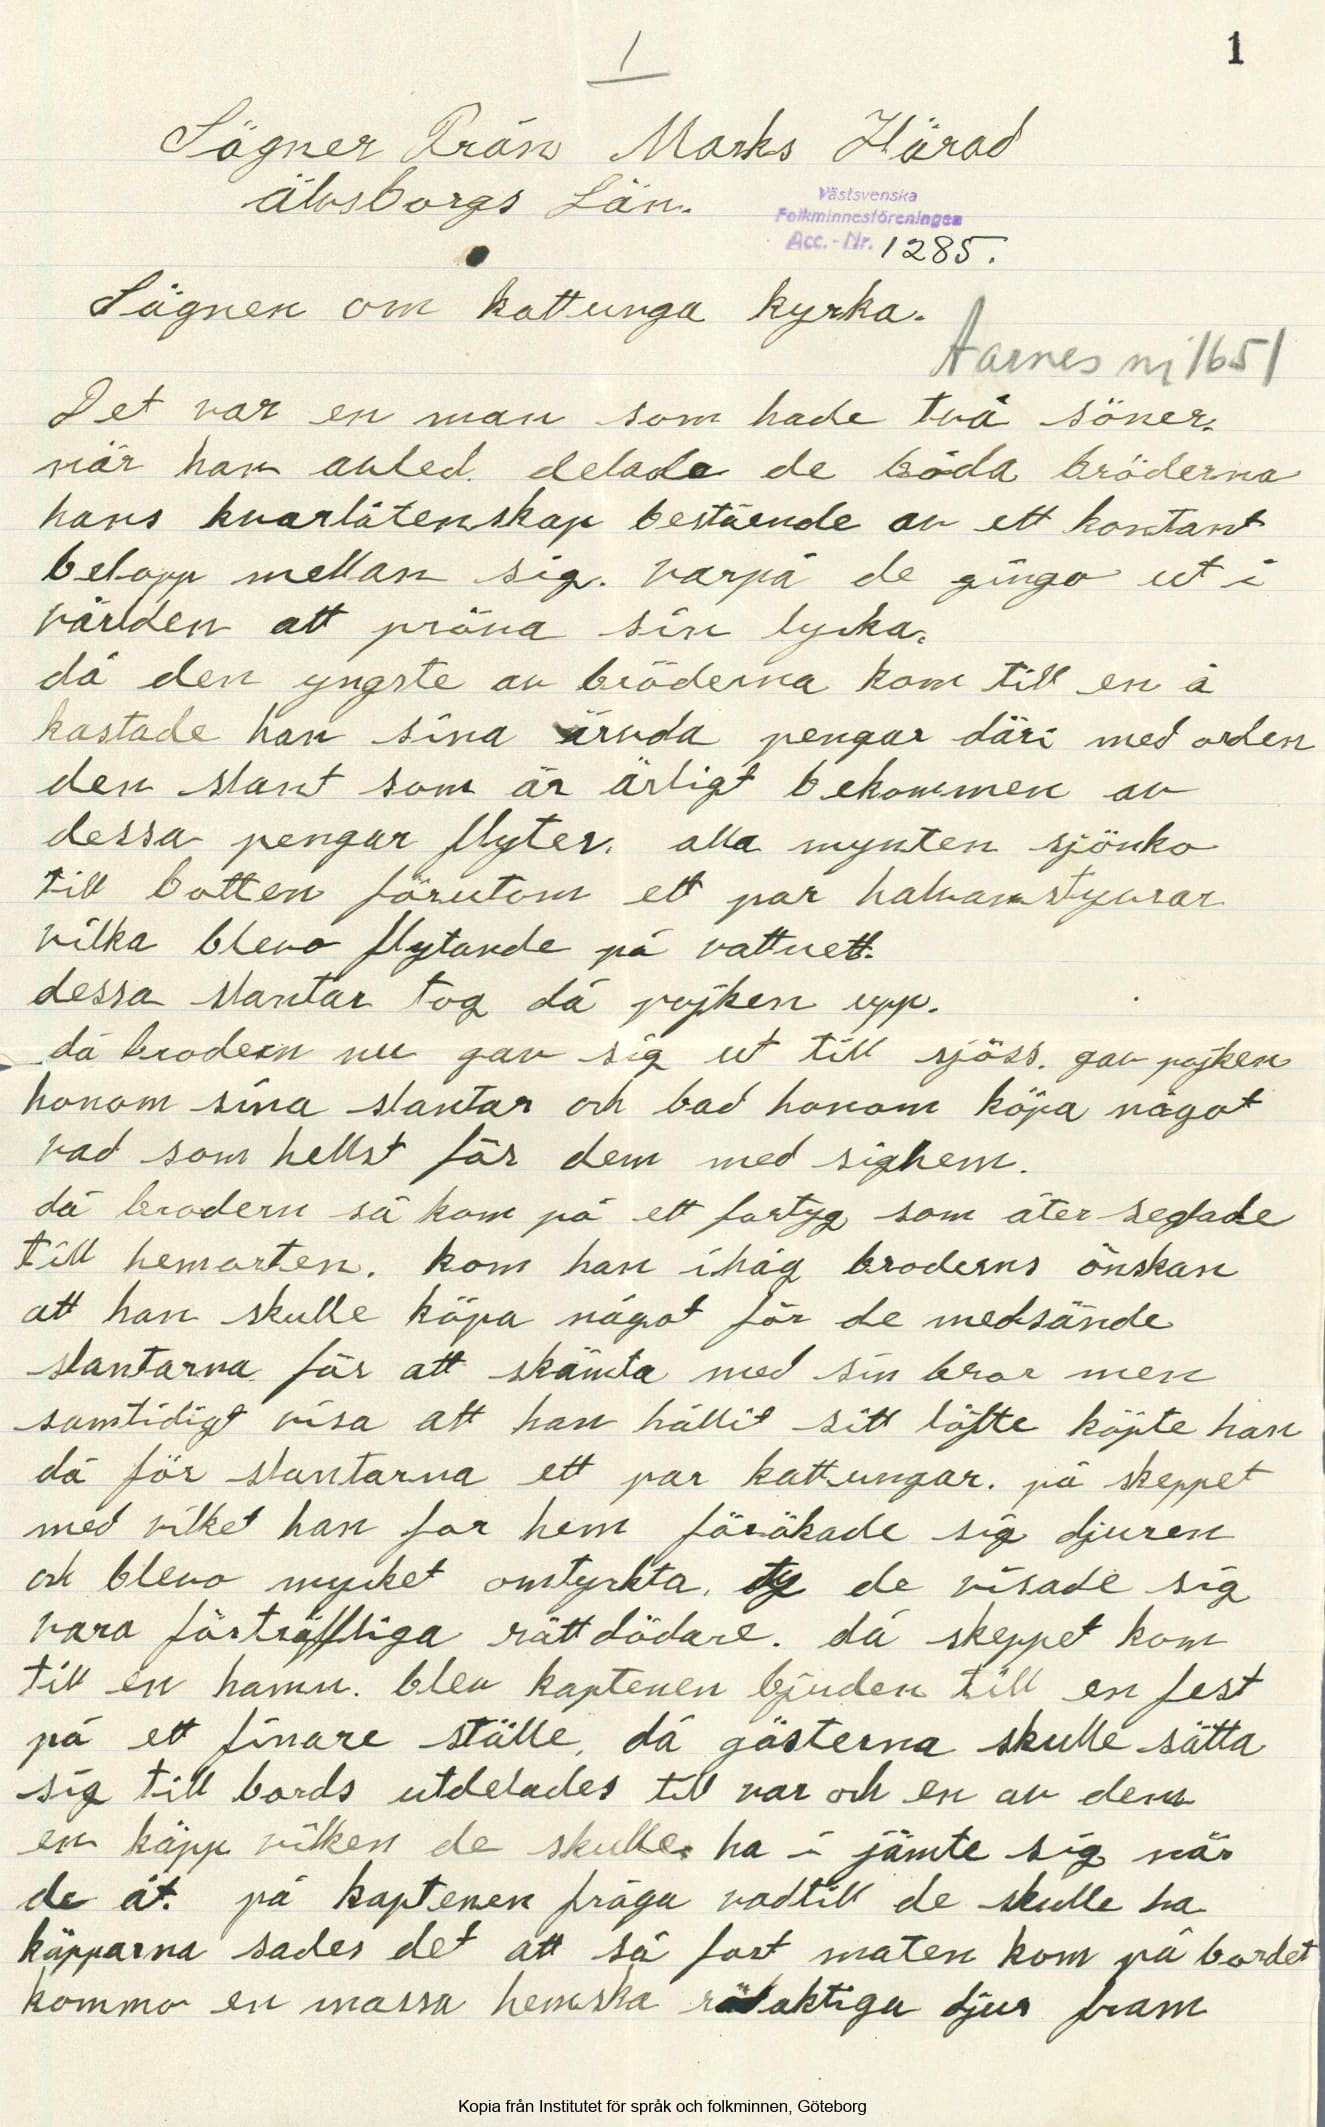 1
1
Sägner Från Marks Härad
älvsborgs Län.
Västsvenska
Folkminnesföreningen
Acc.-Nr. 1285.
Sägnen om kattunga kyrka.
Aarnes nr 1651
Det var en man som hade två söner.
när han avled. delade de båda bröderna
hans kvarlåtenskap bestående av ett kontant
belopp mellan sig. varpå de gingo ut i
världen att pröva sin lycka.
då den yngste av bröderna kom till en å
kastade han sina ärvda pengar däri med orden
den slant som är ärligt bekommen av
dessa pengar flyter. alla mynten sjönko
till botten förutom ett par halvannstyvrar
vilka blevo flytande på vattnett.
dessa slantar tog då pojken upp.
då brodern nu gav sig ut till sjöss. gav pojken
honom sina slantar och bad honom köpa något
vad som hellst för dem med sighem.
då brodern så kom på ett fartyg som åter seglade
till hemorten. kom han ihåg broderns önskan
att han skulle köpa något för de medsände
slantarna för att skämta med sin bror men
samtidigt visa att han hållit sitt löfte köpte han
då för slantarna ett par kattungar. på skeppet
med vilket han for hem förökade sig djuren
och blevo mycket omtyckta, ty de visade sig
vara förträffliga råttdödare. då skeppet kom
till en hamn. blev kaptenen bjuden till en fest
på ett finare ställe, då gästerna skulle sätta
sig till bords utdelades till var och en av dem
en käpp vilken de skulle ha i jämte sig när
de åt. på kaptenen fråga vadtill de skulle ha
käpparna sades det att så fort maten kom på bordet
kommo en massa hemska aktiga djur fram
Kopia från Institutet för språk och folkminnen, Göteborg